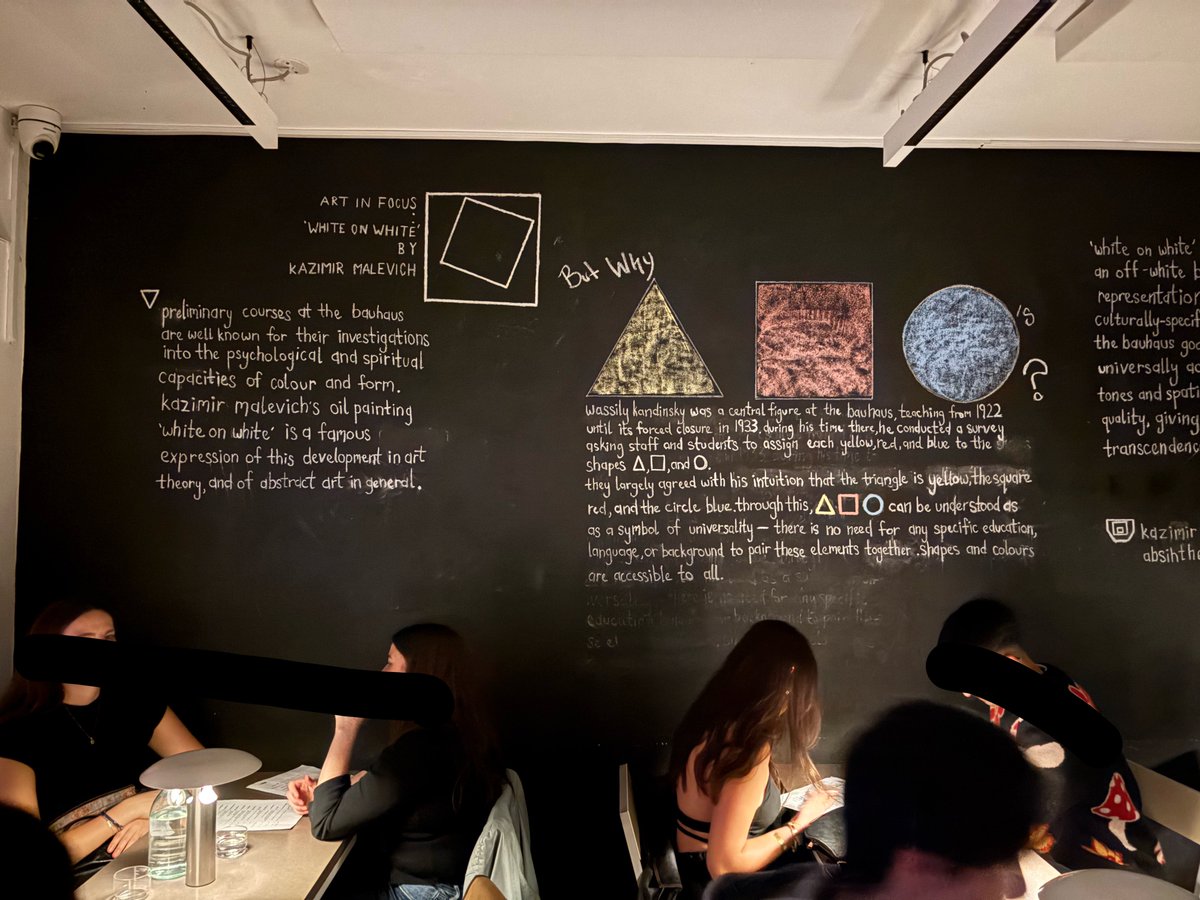 ART IN FOCUS
:
'WHITE ON WHITE'
BY
KAZIMIR MALEVICH
preliminary courses at the bauhaus
are well known for their investigations
into the psychological and spiritual
capacities of colour and form.
kazimir malevich's oil painting
'white on white' is a famous
expression of this development in art
theory, and of abstract art in general.
But Why
's
?
wassily kandinsky was a central figure at the bauhaus, teaching from 1922
until its forced closure in 1933, during his time there, he conducted a survey
asking staff and students to assign each yellow, red, and blue to the
shapes △, □, and ○.
they largely agreed with his intuition that the triangle is yellow, the square
red, and the circle blue. through this, △ □ ○ can be understood as
as a symbol of universality — there is no need for any specific education,
language, or background to pair these elements together. shapes and colours
are accessible to all.
'white on white'
an off-white
representation
culturally-specif
the bauhaus
universally
tones and
quality, giving
transcendenc
kazimir
absinthe